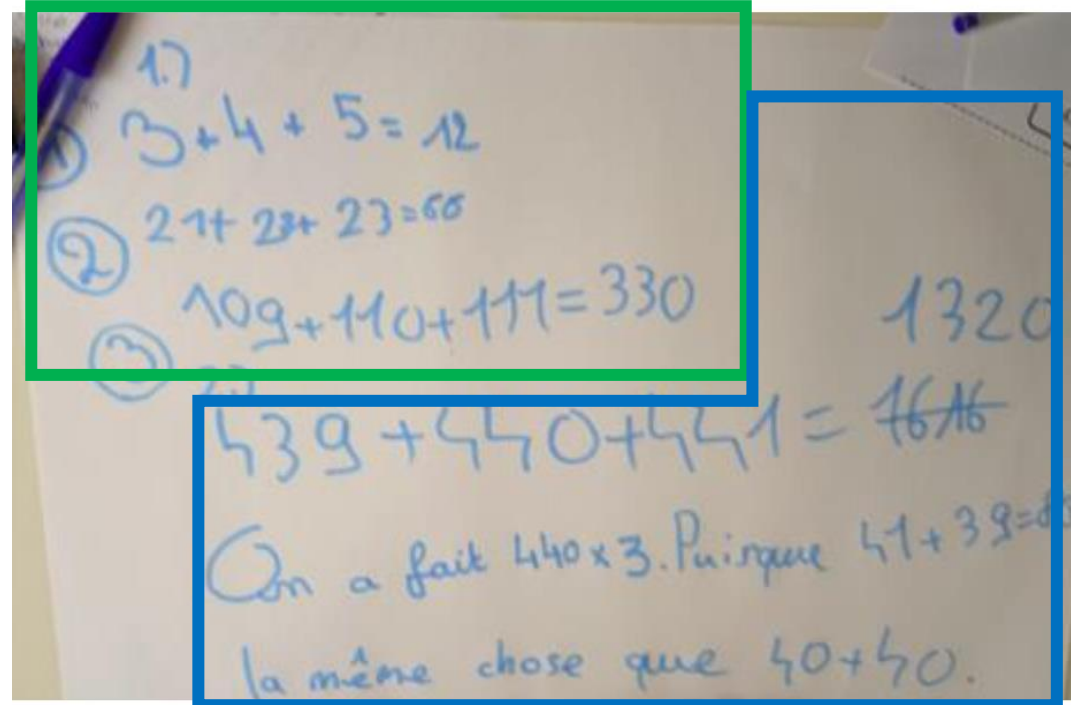 1.)
① 3+4+5=12
② 21+22+23=66
③ 109+110+111=330
1320
439+440+441= 1616
On a fait 440x3. Puisque 41+39=80
la même chose que 40+40.